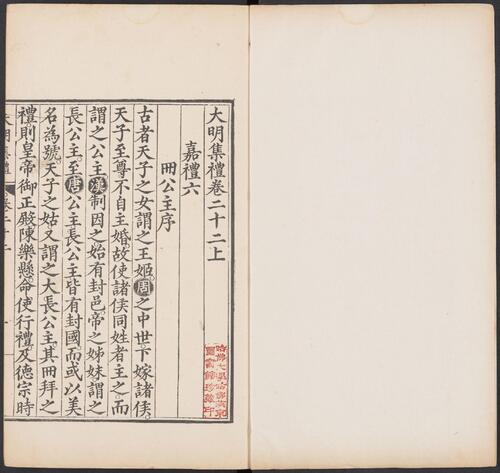 大明集禮卷二十二上
嘉禮六
冊公主序
古者天子之女謂之王姬。周之中世。下嫁諸侯。
天子至尊不自主婚。故使諸侯同姓者主之。而
謂之公主。漢制因之。始有封邑。帝之姊妹謂之
長公主。至唐公主長公主皆有封國。而或以美
名為號。天子之姑又謂之大長公主。其冊拜之
禮。則皇帝御正殿。陳樂懸。命使行禮。及德宗時
大明集禮
哈佛大學哈佛燕京
圖書館珍藏印